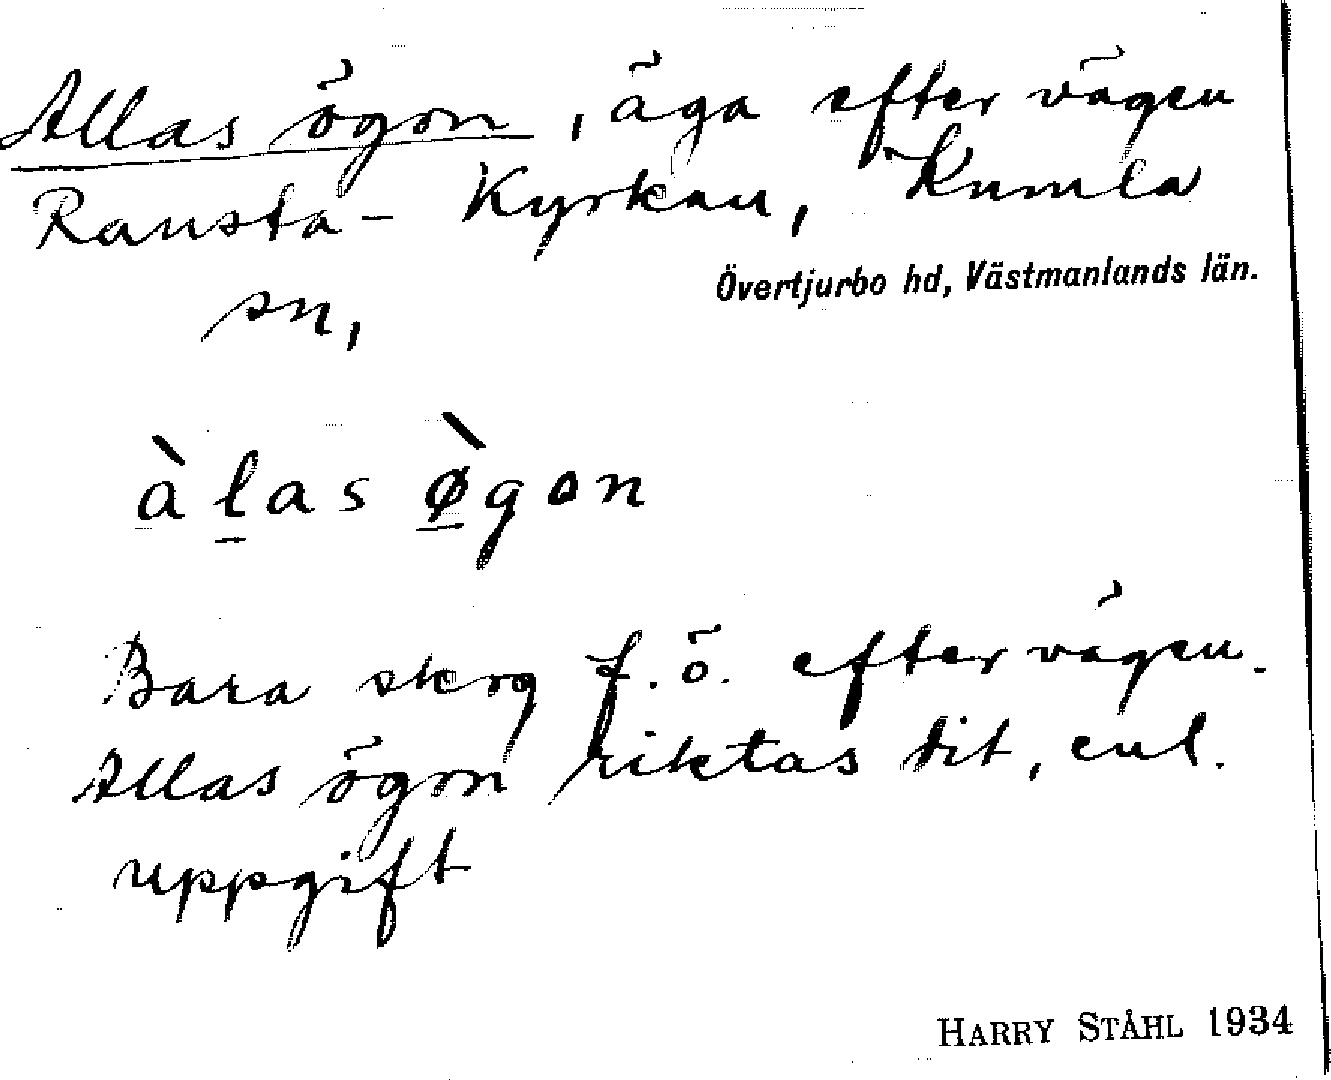 Allas ögon, äga efter vägen
Ransta - Kyrkan, Kumla
Övertjurbo hd, Västmanlands län.
sn,
àlas øgon
Bara skog f. ö. efter vägen.
Allas ögon riktas dit, enl.
uppgift
HARRY STÅHL 1934